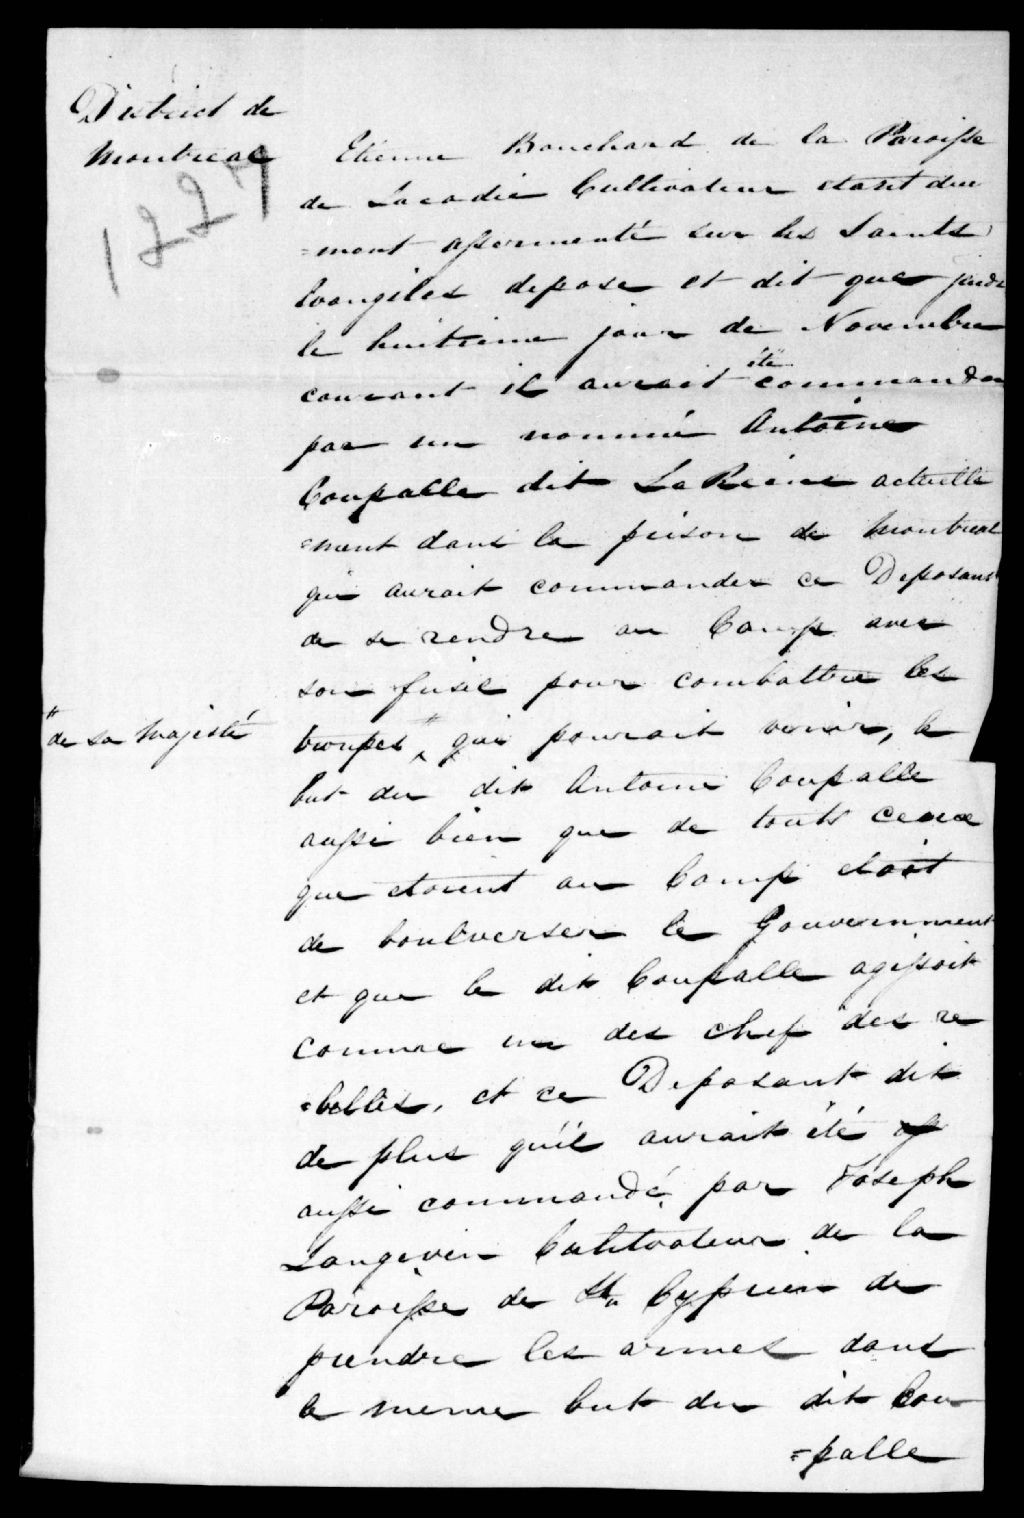 District de
Montreal
1227
Etienne Bouchard de la Paroisse
de Lacadie Cultivateur etant due
=ment assermenté sur les Saints
Evangiles depose et dit que jeudi
le huitieme jour de Novembre
courant il aurait été commander
par un nommé Antoine
Coupalle dit La Reine actuelle
=ment dans la prison de Montreal
qui aurait commander ce Deposant
de se rendre au Camp avec
son fusil pour combattre les
troupes " qui pourait venir, le
" de sa Majesté
but du dit Antoine Coupalle
aussi bien que de touts ceux
que etoient au Camp etoit
de boulverser le Gouvernment
et que le dit Coupalle agissoit
comme un des chef des re
=belles, et ce Deposant dit
de plus qu'il aurait été
aussi commandé par Joseph
Langevin Cultivateur de la
Paroisse de St Cyprien de
prendre les armes dans
le meme but du dit Cou
=palle